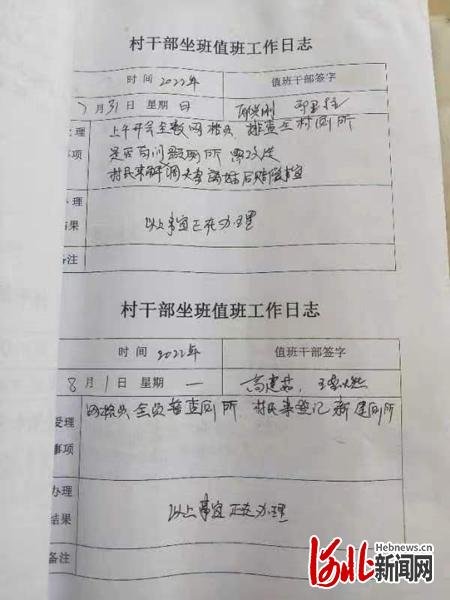 村干部坐班值班工作日志
时间 2022年 值班干部签字
7月31日 星期 日
理 上午开会全数网格员 排查全村厕所
事项 是否有问题厕所 需改造
村民来解调大李离婚后赔偿事宜
办理 以上事宜正在办理
结果
备注
村干部坐班值班工作日志
时间 2022年 值班干部签字
8月1日 星期 一 高建茹
受理 网格员全员普查厕所 村民来登记新建厕所
事项
办理 以上事宜正在办理
结果
备注
Hebnews.cn
河北新闻网